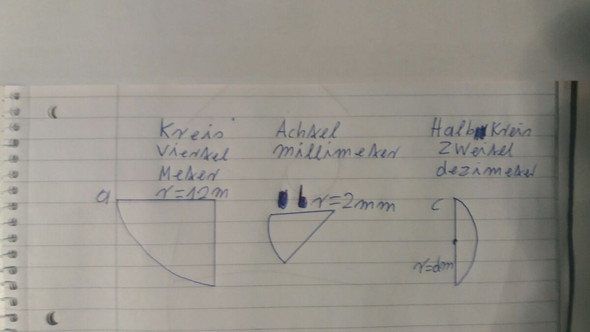 Kreis
viertel
Meter
a r=12m
Achtel
millimeter
b r=2mm
Halbkreis
zweitel
dezimeter
c